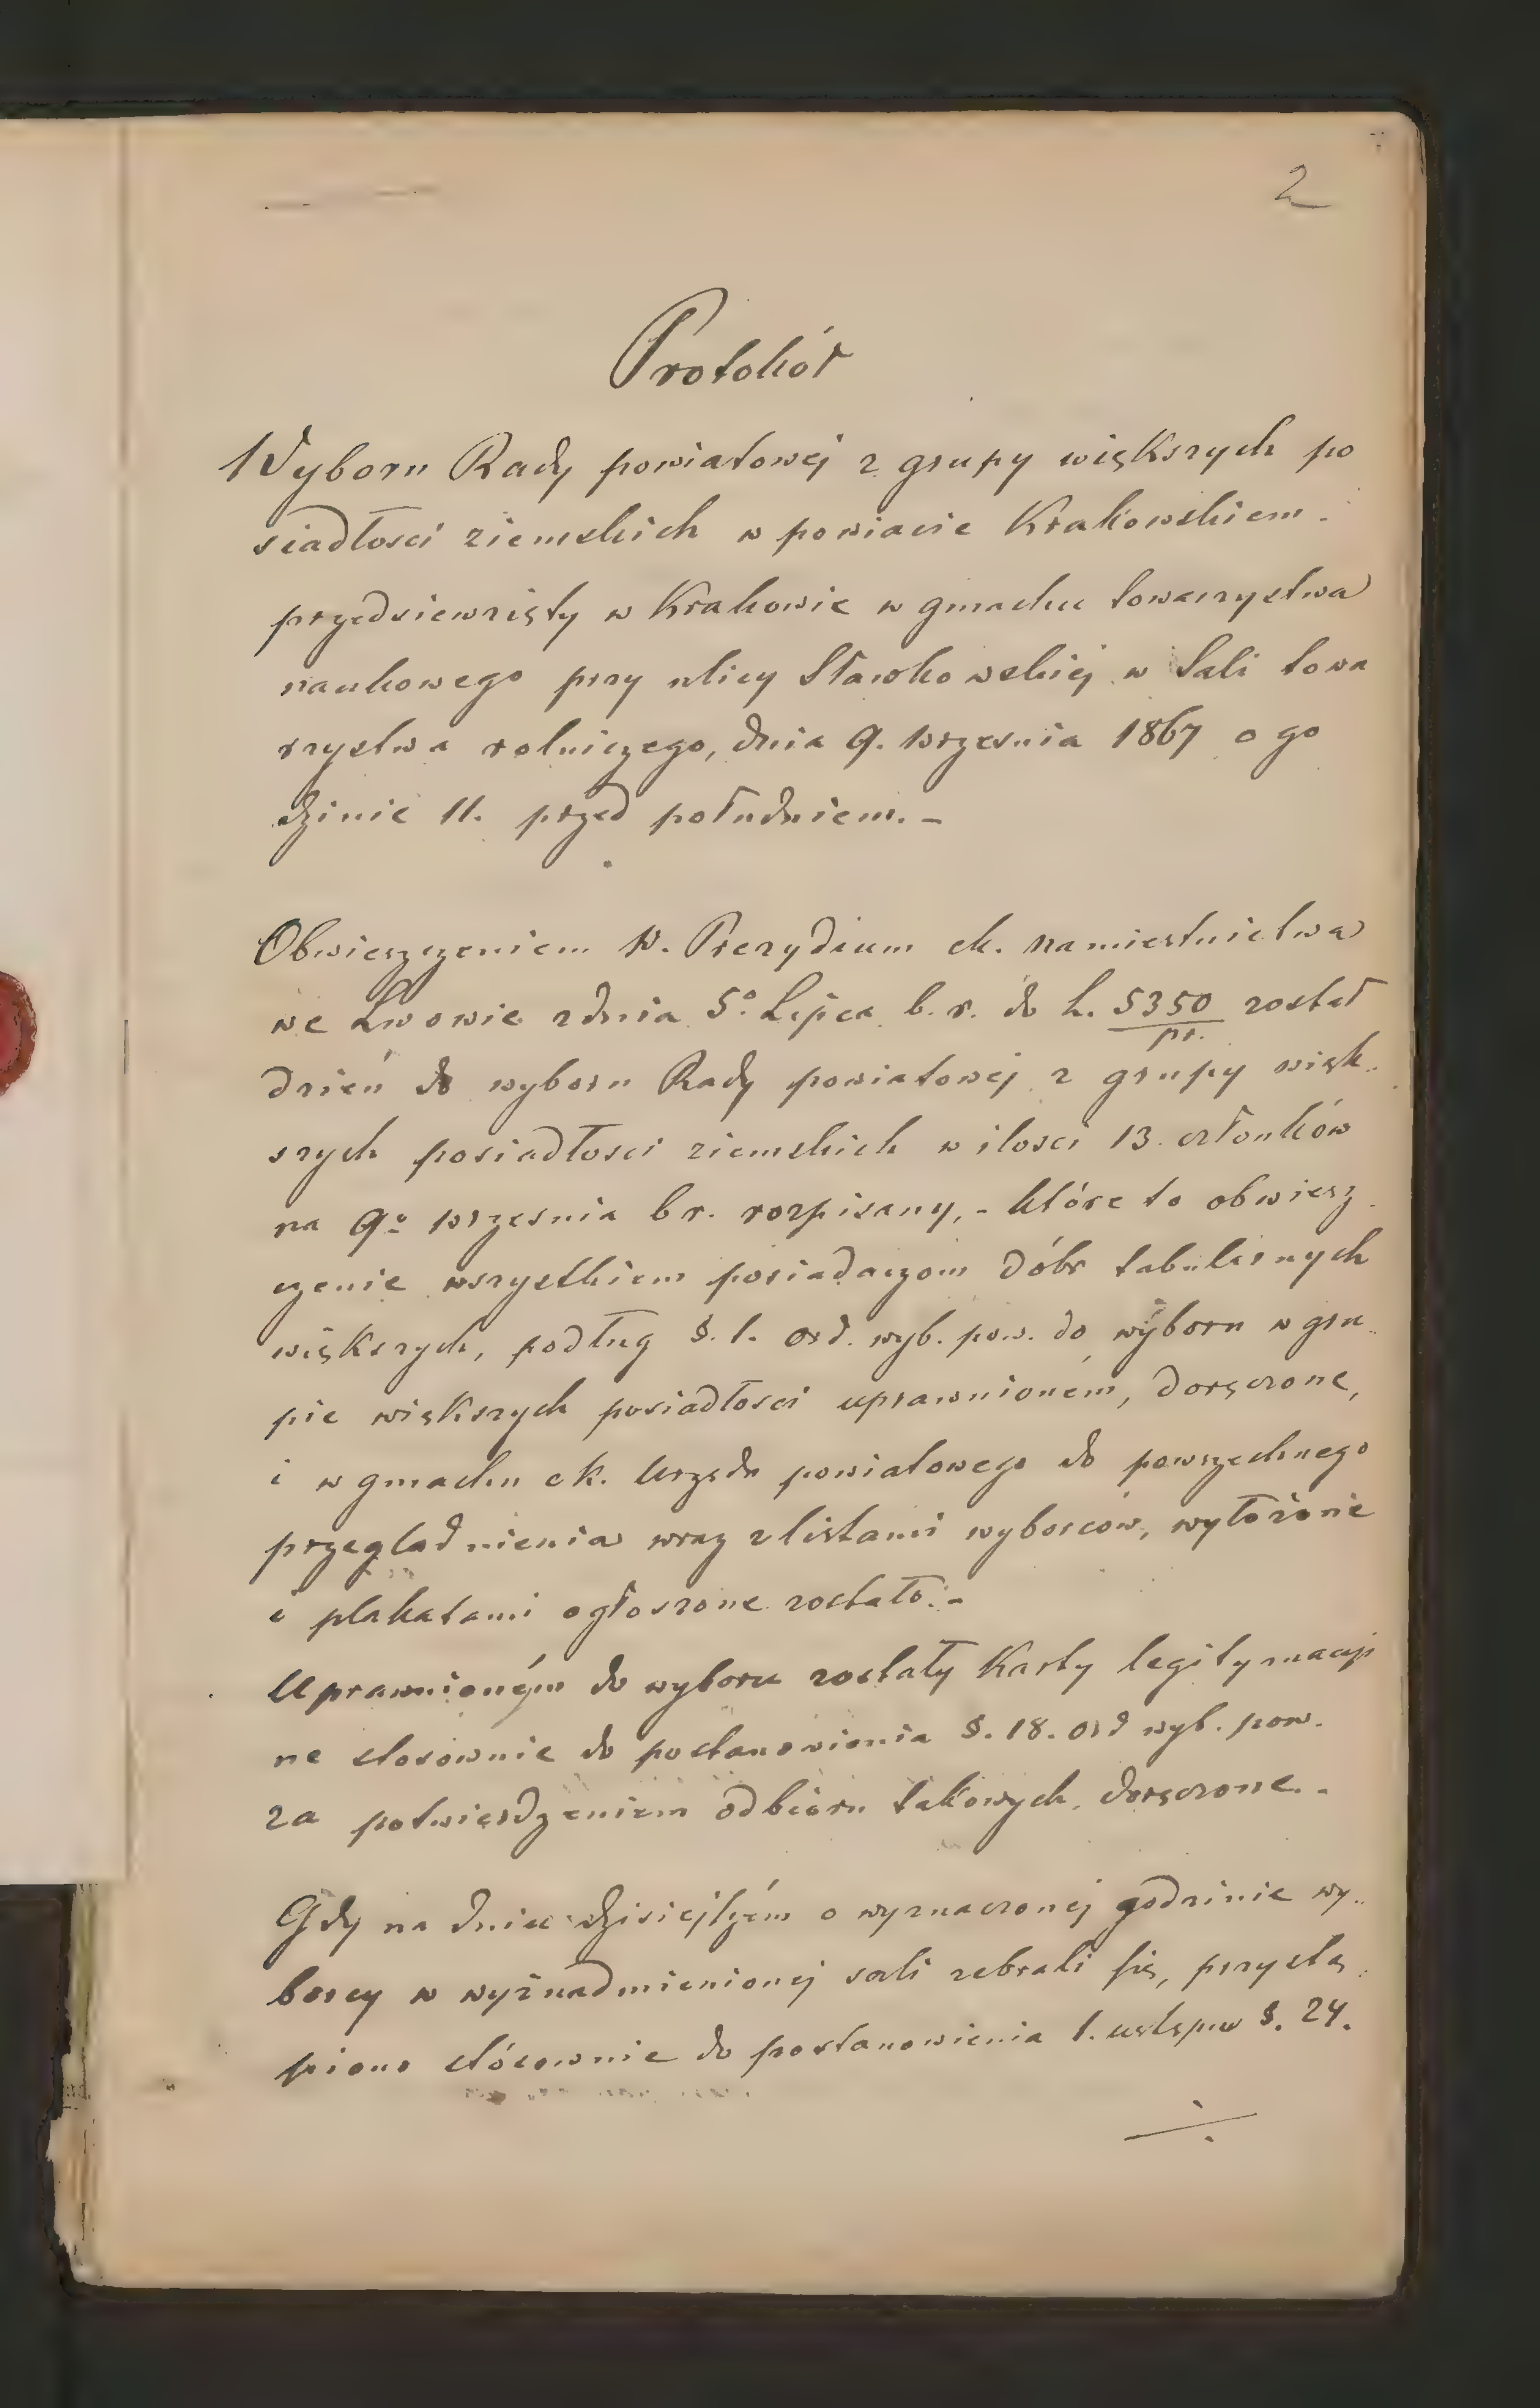 2
Protokół
Wyboru Rady powiatowej z grupy większych po
siadłosci ziemskich w powiacie Krakowskiem.
przedsiewzięty w Krakowie w gmachu towarzystwa
naukowego przy ulicy Sławkowskiej w Sali towa
rzystwa rolniczego, dnia 9. Września 1867 o go
dzinie 11. przed południem. -
Obwieszczeniem W. Prezydium ck. namiestnictwa
we Lwowie z dnia 5º Lipca b. r. do L. 5350/pr. został
dzień do wyboru Rady powiatowej z grupy więk-
szych posiadłosci ziemskich w ilosci 13. członków
na 9º Wrzesnia b r. rozpisany, - które to obwiesz-
czenie wszystkiem posiadaczom dóbr tabularnych
większych, podług §. 1. ord. wyb. pow. do wyboru w gru-
pie większych posiadłosci uprawnioném, doręczone,
i w gmachu c k. Urzędu powiatowego do powszechnego
przeglądnienia wraz z listami wyborców, wyłożone
i plakatami ogłoszone zostało. -
Uprawnionym do wyboru zostały Karty legitymacyj
ne stosownie do postanowienia §. 18. ord wyb. pow.
za potwierdzeniem odbioru takowych, doręczone. -
Gdy na dniu dzisiejszém o wyznaczonej godzinie wy-
borcy w wyżnadmienionej sali zebrali się, przystą-
piono stósownie do postanowienia 1. ustępu §. 24.